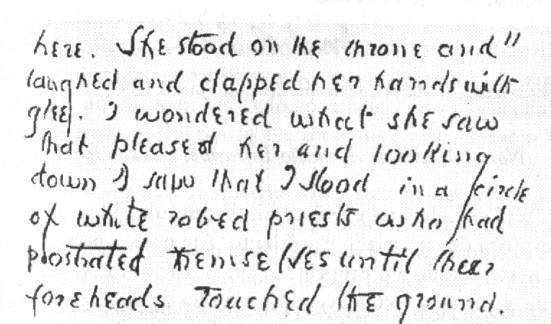 here. She stood on the throne and"
laughed and clapped her hands with
glee. I wondered what she saw
that pleased her and looking
down I saw that I stood in a circle
of white robed priests who had
prostrated themselves until their
foreheads touched the ground.